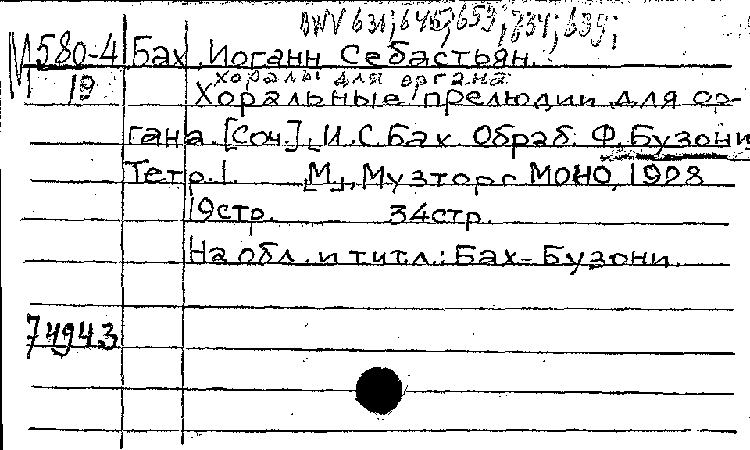 BWV 631; 645; 659; 734; 639;
М 580-4 Бах, Иоганн Себастьян.
19 хоралы для органа
Хоральные прелюдии для ор-
гана. [Соч.], И.С. Бах. Обраб. Ф. Бузони
Тетр. 1. [М.], Музторг МОНО, 1928
19стр. 34стр.
На обл. и титл.: Бах-Бузони.
74943